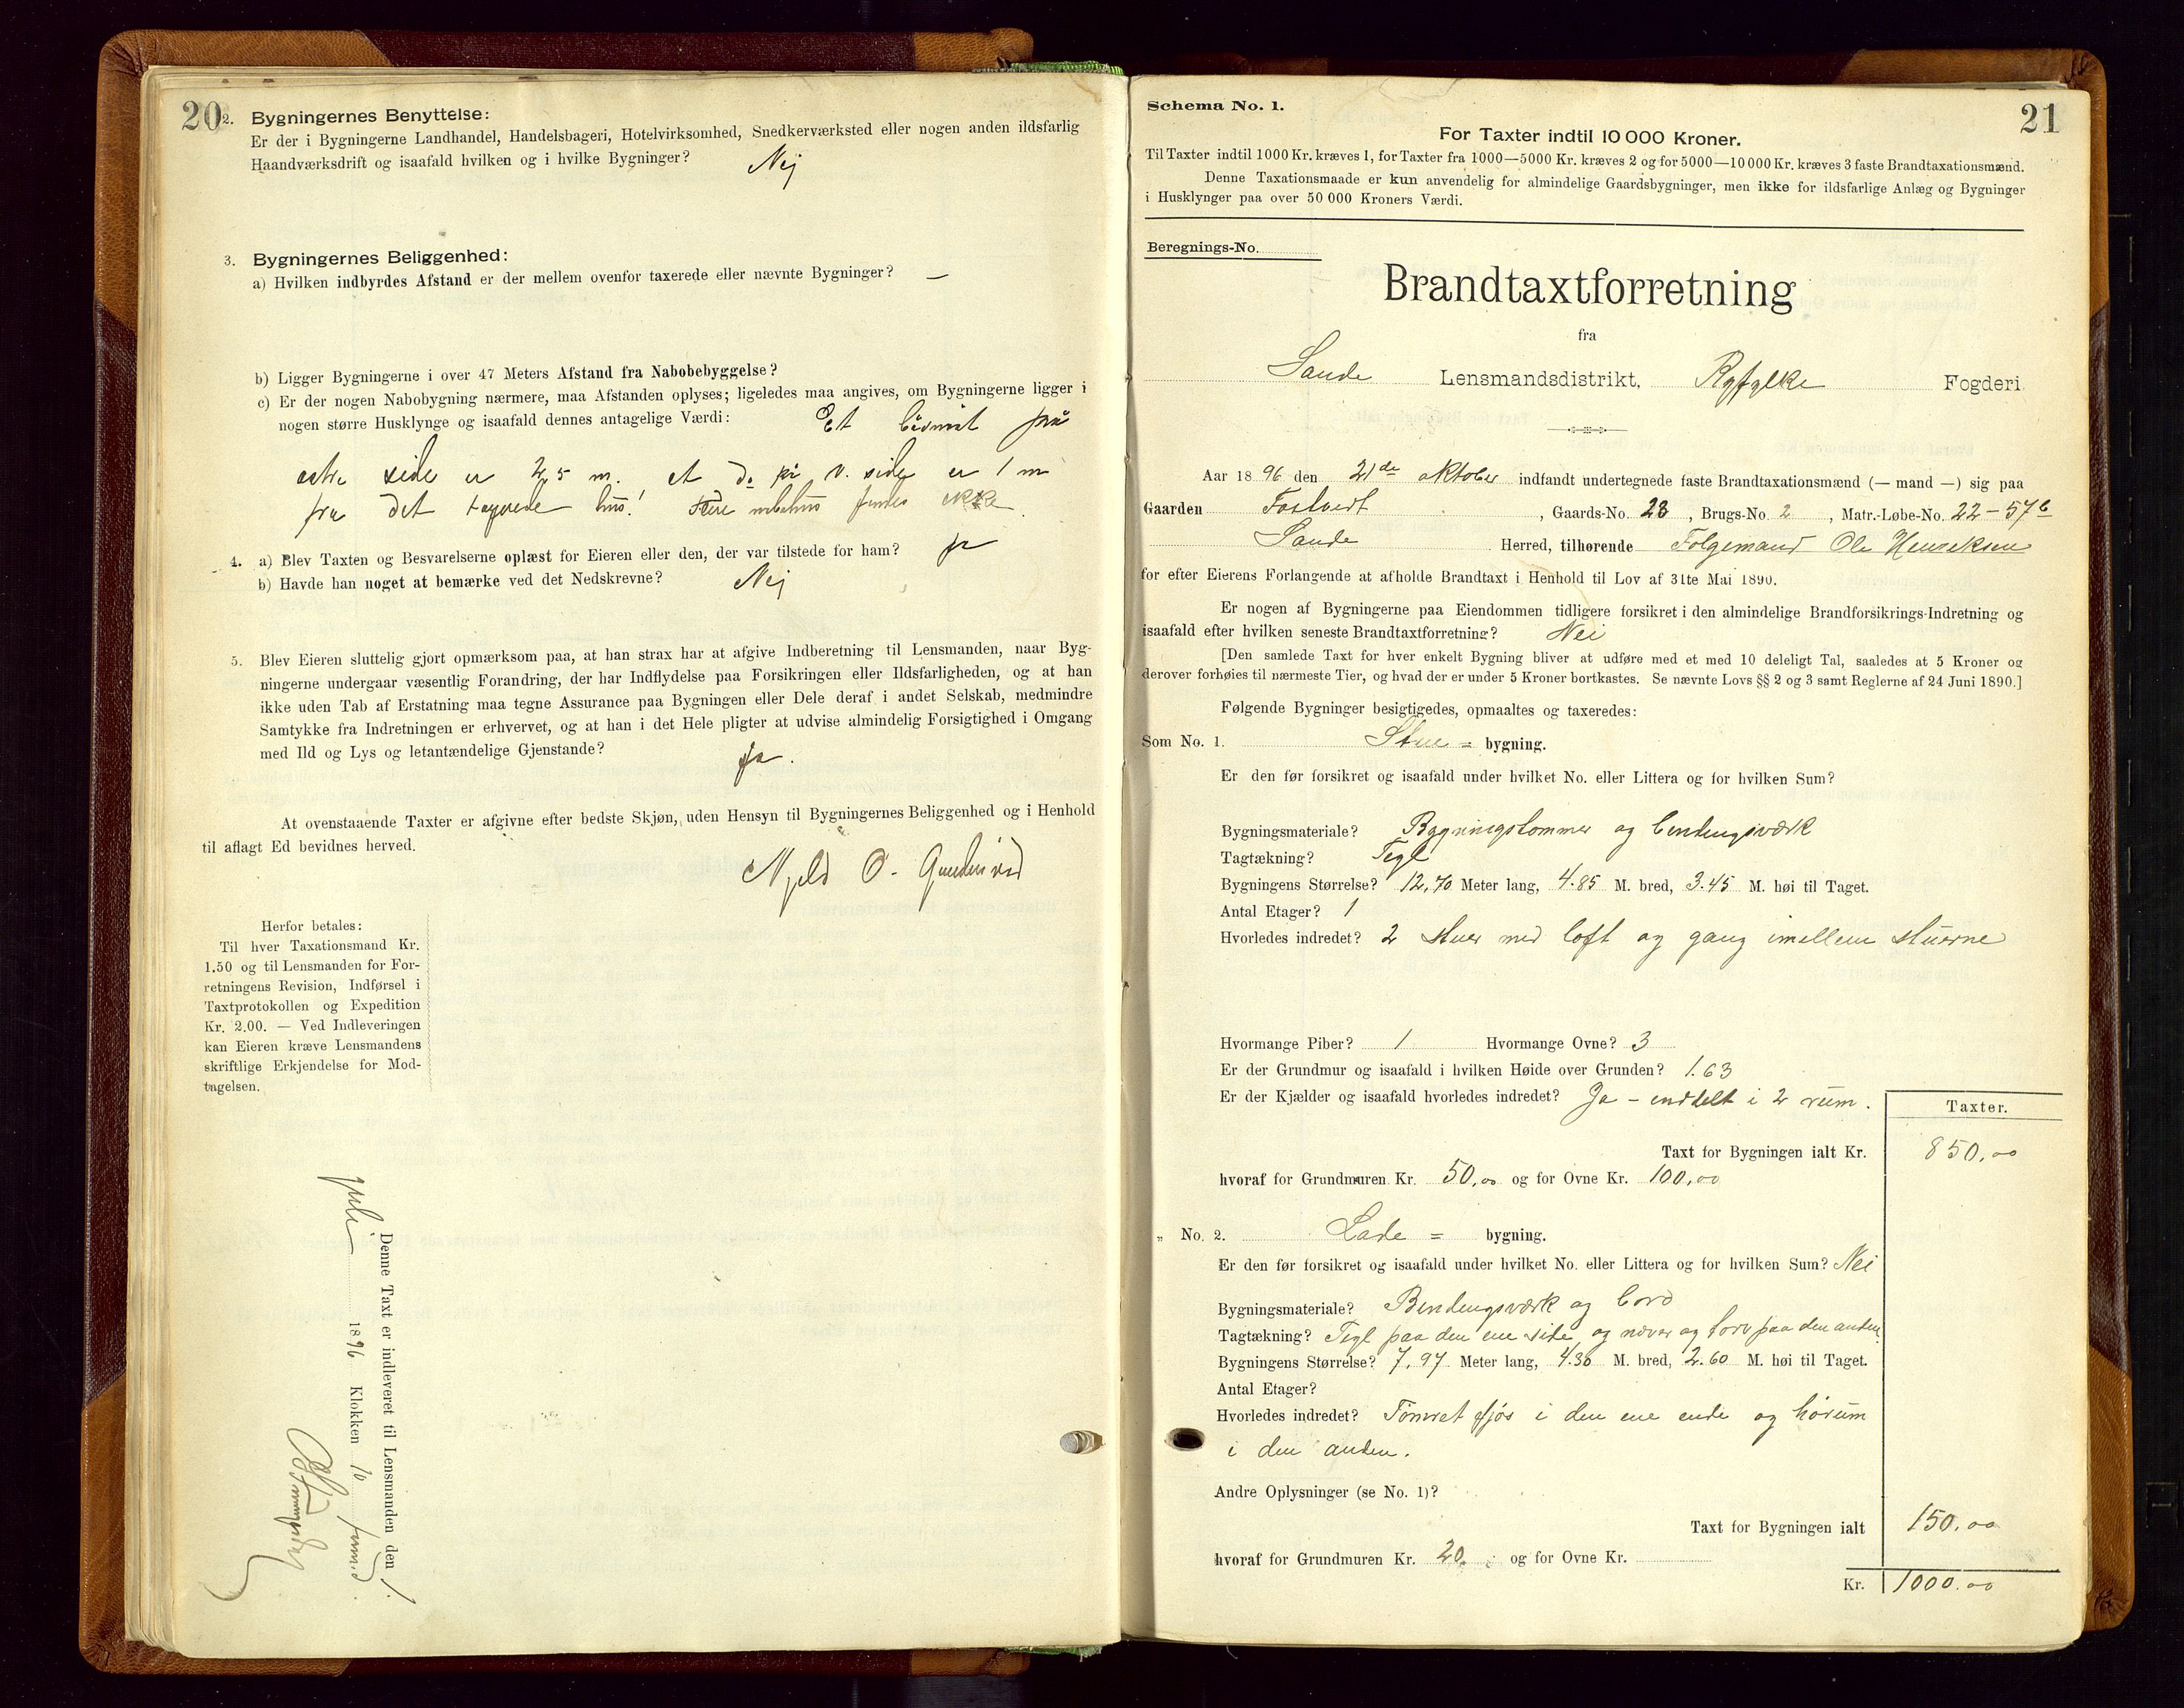 20
2. Bygningernes Benyttelse:
Er der i Bygningerne Landhandel, Handelsbageri, Hotelvirksomhed, Snedkerværksted eller nogen anden ildsfarlig
Haandværksdrift og isaafald hvilken og i hvilke Bygninger? Nej
3. Bygningernes Beliggenhed:
a) Hvilken indbyrdes Afstand er der mellem ovenfor taxerede eller nævnte Bygninger? —
b) Ligger Bygningerne i over 47 Meters Afstand fra Nabobebyggelse?
c) Er der nogen Nabobygning nærmere, maa Afstanden oplyses; ligeledes maa angives, om Bygningerne ligger i
nogen større Husklynge og isaafald dennes antagelige Værdi: Et på
side er 2,5 m. et do på v. side er 1 m
fra det hus! findes ikke.
4. a) Blev Taxten og Besvarelserne oplæst for Eieren eller den, der var tilstede for ham? ja
b) Havde han noget at bemærke ved det Nedskrevne? Nej
5. Blev Eieren sluttelig gjort opmærksom paa, at han strax har at afgive Indberetning til Lensmanden, naar Byg-
ningerne undergaar væsentlig Forandring, der har Indflydelse paa Forsikringen eller Ildsfarligheden, og at han
ikke uden Tab af Erstatning maa tegne Assurance paa Bygningen eller Dele deraf i andet Selskab, medmindre
Samtykke fra Indretningen er erhvervet, og at han i det Hele pligter at udvise almindelig Forsigtighed i Omgang
med Ild og Lys og letantændelige Gjenstande? Ja.
At ovenstaaende Taxter er afgivne efter bedste Skjøn, uden Hensyn til Bygningernes Beliggenhed og i Henhold
til aflagt Ed bevidnes herved.
O.
Herfor betales:
Til hver Taxationsmand Kr.
1.50 og til Lensmanden for For-
retningens Revision, Indførsel i
Taxtprotokollen og Expedition
Kr. 2.00. — Ved Indleveringen
kan Eieren kræve Lensmandens
skriftlige Erkjendelse for Mod-
tagelsen.
Denne Taxt er indleveret til Lensmanden den 1.
juli 1896 Klokken 10 formid.
21
Schema No. 1.
For Taxter indtil 10 000 Kroner.
Til Taxter indtil 1000 Kr. kræves 1, for Taxter fra 1000—5000 Kr. kræves 2 og for 5000—10000 Kr. kræves 3 faste Brandtaxationsmænd.
Denne Taxationsmaade er kun anvendelig for almindelige Gaardsbygninger, men ikke for ildsfarlige Anlæg og Bygninger
i Husklynger paa over 50 000 Kroners Værdi.
Beregnings-No.
Brandtaxtforretning
fra
Sande Lensmandsdistrikt, Ryfylke Fogderi
Aar 1896 den 21de oktober indfandt undertegnede faste Brandtaxationsmænd (— mand —) sig paa
Gaarden Fostvedt, Gaards-No. 28, Brugs-No. 2, Matr.-Løbe-No. 22-57b
Sande Herred, tilhørende Folgemand Ole Henriksen
for efter Eierens Forlangende at afholde Brandtaxt i Henhold til Lov af 31te Mai 1890.
Er nogen af Bygningerne paa Eiendommen tidligere forsikret i den almindelige Brandforsikrings-Indretning og
isaafald efter hvilken seneste Brandtaxtforretning? Nei
[Den samlede Taxt for hver enkelt Bygning bliver at udføre med et med 10 deleligt Tal, saaledes at 5 Kroner og
derover forhøies til nærmeste Tier, og hvad der er under 5 Kroner bortkastes. Se nævnte Lovs §§ 2 og 3 samt Reglerne af 24 Juni 1890.]
Følgende Bygninger besigtigedes, opmaaltes og taxeredes:
Som No. 1. Stue = bygning.
Er den før forsikret og isaafald under hvilket No. eller Littera og for hvilken Sum?
Bygningsmateriale? Bygningstømmer og bindingsværk
Tagtækning? Tegl
Bygningens Størrelse? 12,70 Meter lang, 4.85 M. bred, 3.45 M. høi til Taget.
Antal Etager? 1
Hvorledes indredet? 2 stuer med loft og gang imellem stuerne
Hvormange Piber? 1 Hvormange Ovne? 3
Er der Grundmur og isaafald i hvilken Høide over Grunden? 1.63
Er der Kjælder og isaafald hvorledes indredet? Ja - inddelt i 2 rum.
Taxter.
Taxt for Bygningen ialt Kr. 850,00
hvoraf for Grundmuren Kr. 50,00 og for Ovne Kr. 100,00
" No. 2. Lade = bygning.
Er den før forsikret og isaafald under hvilket No. eller Littera og for hvilken Sum? Nei
Bygningsmateriale? Bindingsværk og bord
Tagtækning? Tegl paa den ene side, og næver og torv paa den anden.
Bygningens Størrelse? 7,97 Meter lang, 4.30 M. bred, 2.60 M. høi til Taget.
Antal Etager?
Hvorledes indredet? Tømret fjøs i den ene ende og hørum
i den anden.
Andre Oplysninger (se No. 1)?
Taxt for Bygningen ialt 150,00
hvoraf for Grundmuren Kr. 20, og for Ovne Kr.
Kr. 1000.00